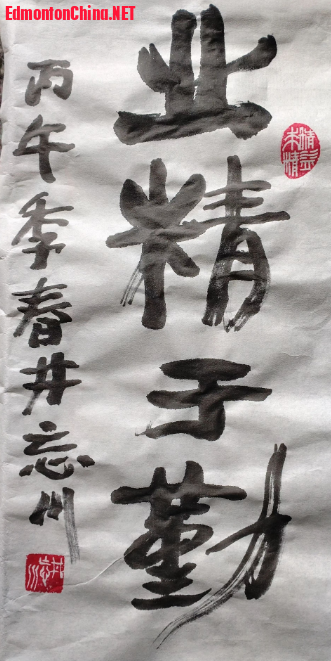 EdmontonChina.NET
业精于勤
丙午季春井忘川